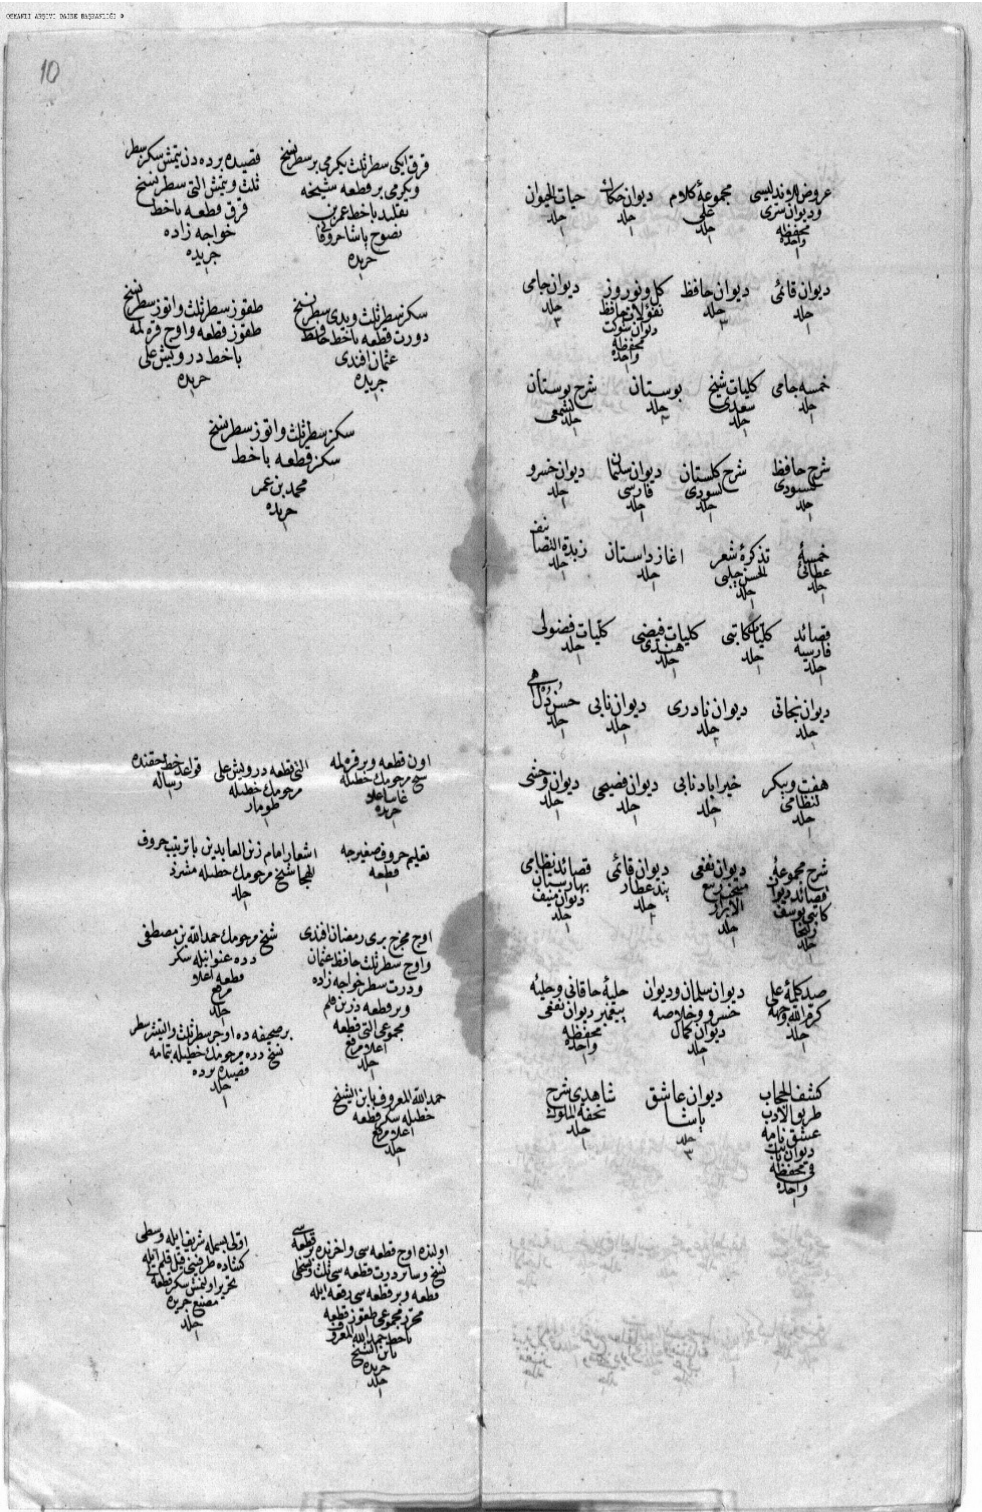 OSMANLI ARŞİVİ DAİRE BAŞKANLIĞI
10
عروض اندلیسی
ودیوان سری
محفظه
واحده
١
مجموعۀ کلام
علی
جلد
١
دیوان خاکان
جلد
١
حیات الحیوان
جلد
١
دیوان قائمی
جلد
١
دیوان حافظ
جلد
٣
کل ونوروز
دیوان شوکت
محفظه
واحده
١
دیوان جامی
جلد
٣
خمسه جامی
جلد
١
کلیات شیخ
سعدی
جلد
١
بوستان
جلد
شرح بوستان
لشمعی
جلد
١
شرح حافظ
لسودی
جلد
١
شرح کلستان
لسودی
جلد
١
دیوان سلمان
فارسی
جلد
١
دیوان خسرو
جلد
١
خمسۀ
عطائی
جلد
١
تذکرۀ شعر
لحسن چلبی
جلد
١
اغاز داستان
جلد
١
زبدة النصائف
جلد
١
قصائد
فارسیه
جلد
١
کلیات کاتبی
جلد
١
کلیات فیضی
هندی
جلد
١
کلیات فضولی
جلد
١
دیوان نجاتی
جلد
١
دیوان نادری
جلد
دیوان نابی
جلد
١
حسن دل آهی
جلد
١
هفت وپیکر
لنظامی
جلد
١
خیراباد نابی
جلد
١
دیوان فصیحی
جلد
١
دیوان وحشی
جلد
١
شرح مجموعۀ
قصائد دیوان
کاتبی یوسف
زلیخا
جلد
١
دیوان نفعی
منتخب ربیع
الابرار
جلد
١
دیوان قائمی
پند عطار
جلد
١
قصائد نظامی
بهارستان
دیوان منیف
جلد
١
صد کلمۀ علی
کرم الله وجهه
جلد
١
دیوان سلمان ودیوان
خسرو وخلاصه
دیوان کمال
جلد
١
حلیۀ خاقانی وحلیۀ
پیغمبر دیوان نفعی
محفظه
واحده
١
کشف الحجاب
طریق الادب
عشق نامه
دیوان ثابت
فی محفظة
واحده
١
دیوان عاشق
پاشا
جلد
٣
شاهدی شرح
تحفة الملوک
جلد
١
قرق ایکی سطر ثلث یکرمی بر سطر نسخ
ویکرمی بر قطعه مشیخه
تقلید باخط عمر بن
نصوح پاشا
جریده
١
قصیده برده دن یتمش سکز سطر
ثلث ویتمش التی سطر نسخ
قرق قطعه باخط
خواجه زاده
جریده
١
سکز سطر ثلث ویدی سطر نسخ
دورت قطعه باخط حافظ
عثمان افندی
جریده
١
طقوز سطر ثلث واتوز سطر نسخ
طقوز قطعه واوچ قره لمه
باخط درویش علی
جریده
١
سکز سطر ثلث واتوز سطر نسخ
سکز قطعه باخط
محمد بن عمر
جریده
١
اون قطعه وبر قره لمه
شیخ مرحومک خطیله
جریده
١
التی قطعه درویش علی
مرحومک خطیله
طومار
١
قواعد خط حقنده
رساله
١
تعلیم حروف صغیرجه
قطعه
١
اشعار امام زین العابدین با ترتیب حروف
الهجا شیخ مرحومک خطیله
جلد
١
اوچ مخرج بری رمضان افندی
واوچ سطر ثلث حافظ عثمان
ودرت سطر خواجه زاده
وبر قطعه
مجموعی التی قطعه
اعلا مرقع
جلد
١
شیخ مرحومک حمد الله بن مصطفی
دده عنوانیله سکز
قطعه اعلا
مرقع
جلد
١
بر صحیفه ده اوچر سطر ثلث والتیشر سطر
نسخ دده مرحومک خطیله بتمامه
قصیده برده
جلد
١
حمد الله المعروف بابن الشیخ
خطیله سکز قطعه
اعلا مرقع
جلد
١
اولنده اوچ قطعه سی واخرنده قطعه سی
نسخ وسائر درت قطعه سی ثلث ونسخلی
قطعه وبر قطعه سی رقعه ایله
محرر مجموعی طقوز قطعه
باخط حمد الله المعروف
بابن الشیخ
جریده
جلد
١
اولی بسمله شریف ایله وسطی
کشاده طرفینی قیل قلم ایله
تحریر اولنمش سکز قطعه
مصنع جریده
جلد
١